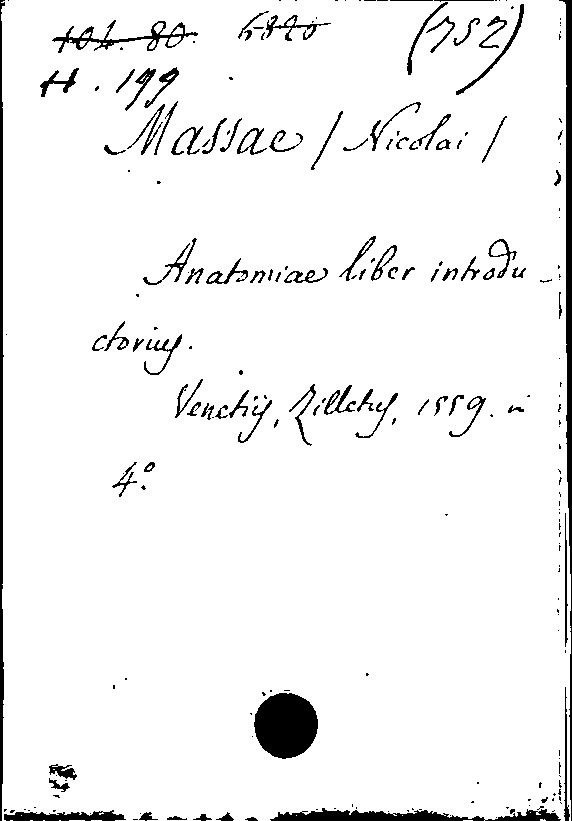 104. 80. 6820 (752)
H. 199
Massae / Nicolai /
Anatomiae liber introdu-
ctorius.
Venetiis, Zilletus, 1559. in
4°.